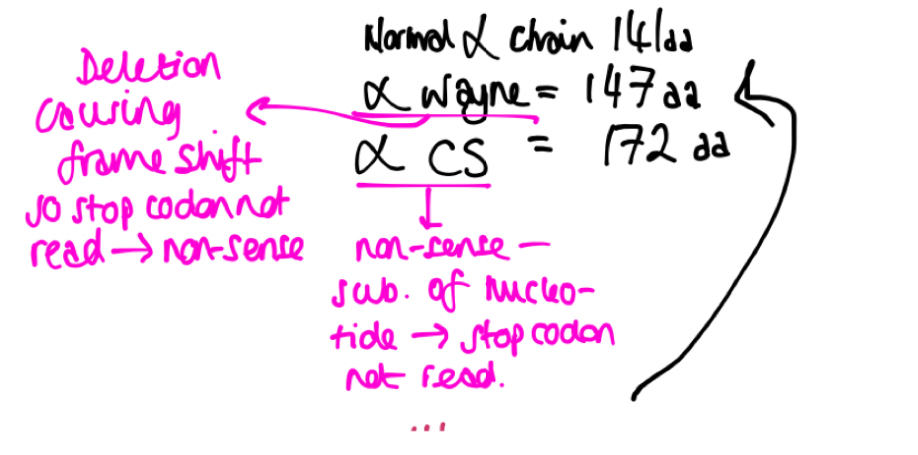 Normal α chain 141aa
α Wayne = 147aa
α CS = 172 aa
Deletion
causing
frame shift
so stop codon not
read → non-sense
non-sense –
sub. of nucleo-
tide → stop codon
not read.
...